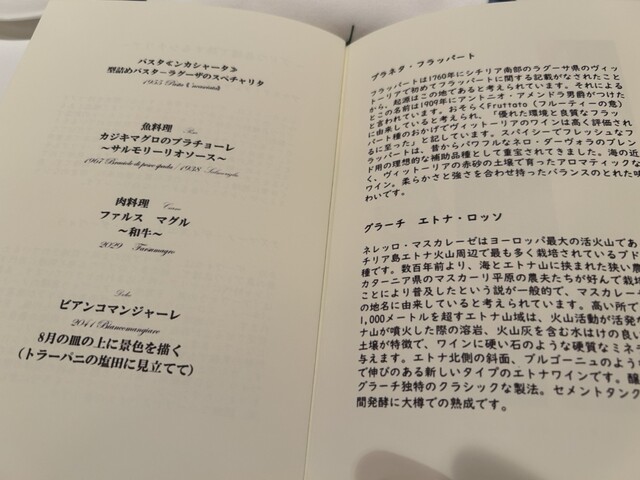 パスタ≪ンカシャータ≫
型詰めパスターラグーザのスペチャリタ
1955 Pasta
魚料理
カジキマグロのブラチョーレ
～サルモリーリオソース～
1967 Braciole di pesce spada / 1958 Salmoriglio
肉料理 Carne
ファルス マグル
～和牛～
2029 Farsumagru
Dolce
ビアンコマンジャーレ
2041 Biancomangiare
8月の皿の上に景色を描く
(トラーパニの塩田に見立てて)
プラネタ・フラッパート
フラッパートは1760年にシチリア南部のラグーサ県のヴィッ
トーリアで初めてフラッパートに関する記載がなされたこと
から、起源はこの地であると考えられています。それによる
とこの名前は1909年にアントニオ・アメンドラ男爵がつけた
と言われています。おそらくFruttato（フルーティーの意）
に由来していると考えられ、「優れた環境と良質なフラッ
パート種のおかげでヴィットーリアのワインは高く評価され
るに至った」と記しています。スパイシーでフレッシュなフ
ラッパートは、昔からパワフルなネロ・ダーヴォラのブレン
ド用の理想的な補助品種として重宝されてきました。海の近
く、ヴィットーリアの赤砂の土壌で育ったアロマティックな
ワイン。柔らかさと強さを合わせ持ったバランスのとれた味
わいです。
グラーチ エトナ・ロッソ
ネレッロ・マスカレーゼはヨーロッパ最大の活火山であ
チリア島エトナ火山周辺で最も多く栽培されているブド
種です。数百年前より、海とエトナ山に挟まれた狭い農
カターニア県のマスカーリ平原の農夫たちが好んで栽培
ことにより普及したという説が一般的で、マスカレー
の地名に由来していると考えられています。高い所で
1,000メートルを超すエトナ山域は、火山活動が活発
ナ山が噴火した際の溶岩、火山灰を含む水はけの良い
土壌が特徴で、ワインに硬い石のような硬質なミネ
与えます。エトナ北側の斜面、ブルゴーニュのよう
で伸びのある新しいタイプのエトナワインです。醸
グラーチ独特のクラシックな製法。セメントタンク
間発酵に大樽での熟成です。